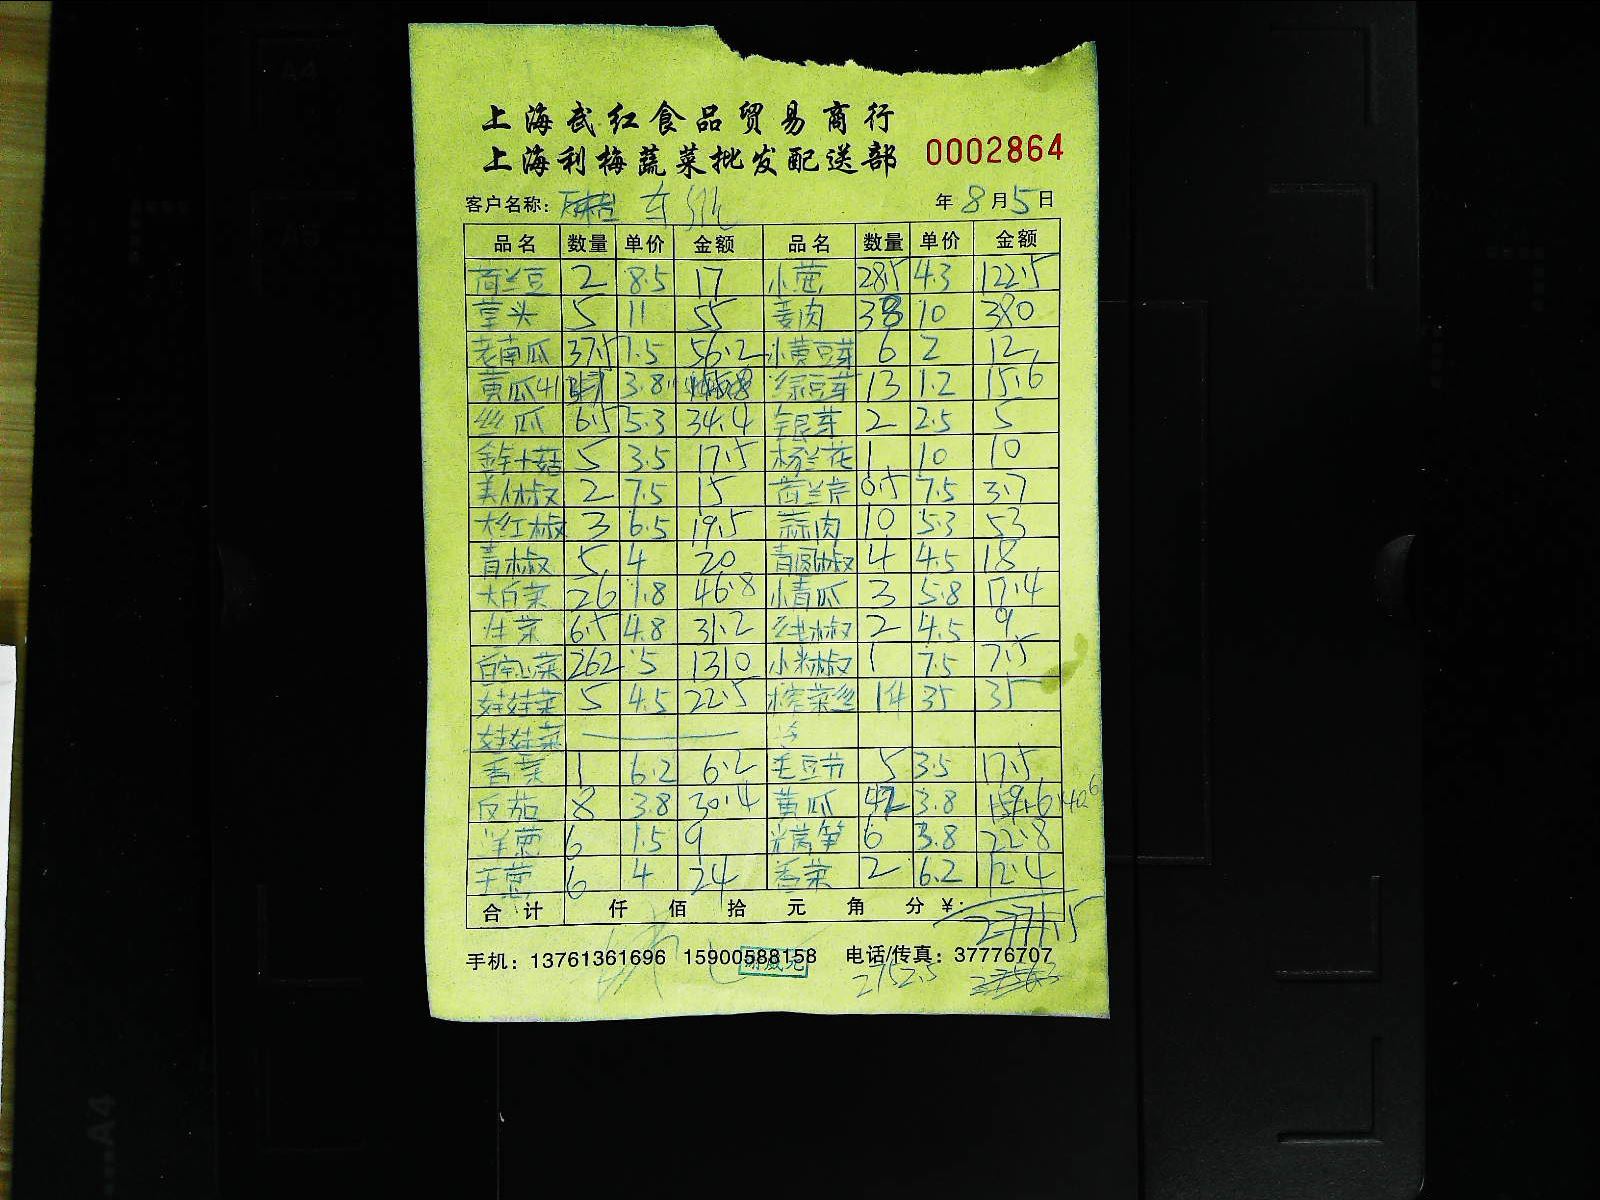 上海武红食品贸易商行
上海利梅蔬菜批发配送部 0002864
客户名称: 年 8 月 5 日
品名 数量 单价 金额 品名 数量 单价 金额
荷兰豆 2 8.5 17 小葱 28.5 4.3 122.5
草头 5 11 55 姜肉 38 10 380
老南瓜 37.5 1.5 56.2 小黄豆芽 6 2 12
黄瓜 41 3.8 绿豆芽 13 1.2 15.6
丝瓜 6.5 5.3 34.4 银芽 2 2.5 5
金针菇 5 3.5 17.5 杨兰花 1 10 10
美人椒 2 7.5 15 荷兰芹 0.5 7.5 3.7
大红椒 3 6.5 19.5 蒜肉 10 5.3 53
青椒 5 4 20 青圆椒 4 4.5 18
大白菜 26 1.8 46.8 小青瓜 3 5.8 17.4
生菜 6.5 4.8 31.2 线椒 2 4.5 9
262 5 1310 小米椒 1 7.5 7.5
娃娃菜 5 4.5 22.5 榨菜丝 1件 35 35
娃娃菜
香菜 1 6.2 6.2 毛豆节 5 3.5 17.5
反茄 8 3.8 30.4 黄瓜 42 3.8 159.6
洋葱 6 1.5 9 光莴笋 6 3.8 22.8
京葱 6 4 24 香菜 2 6.2 12.4
合计 仟 佰 拾 元 角 分 ¥: 2771.5
手机: 13761361696 15900588158 电话/传真: 37776707
2752.5